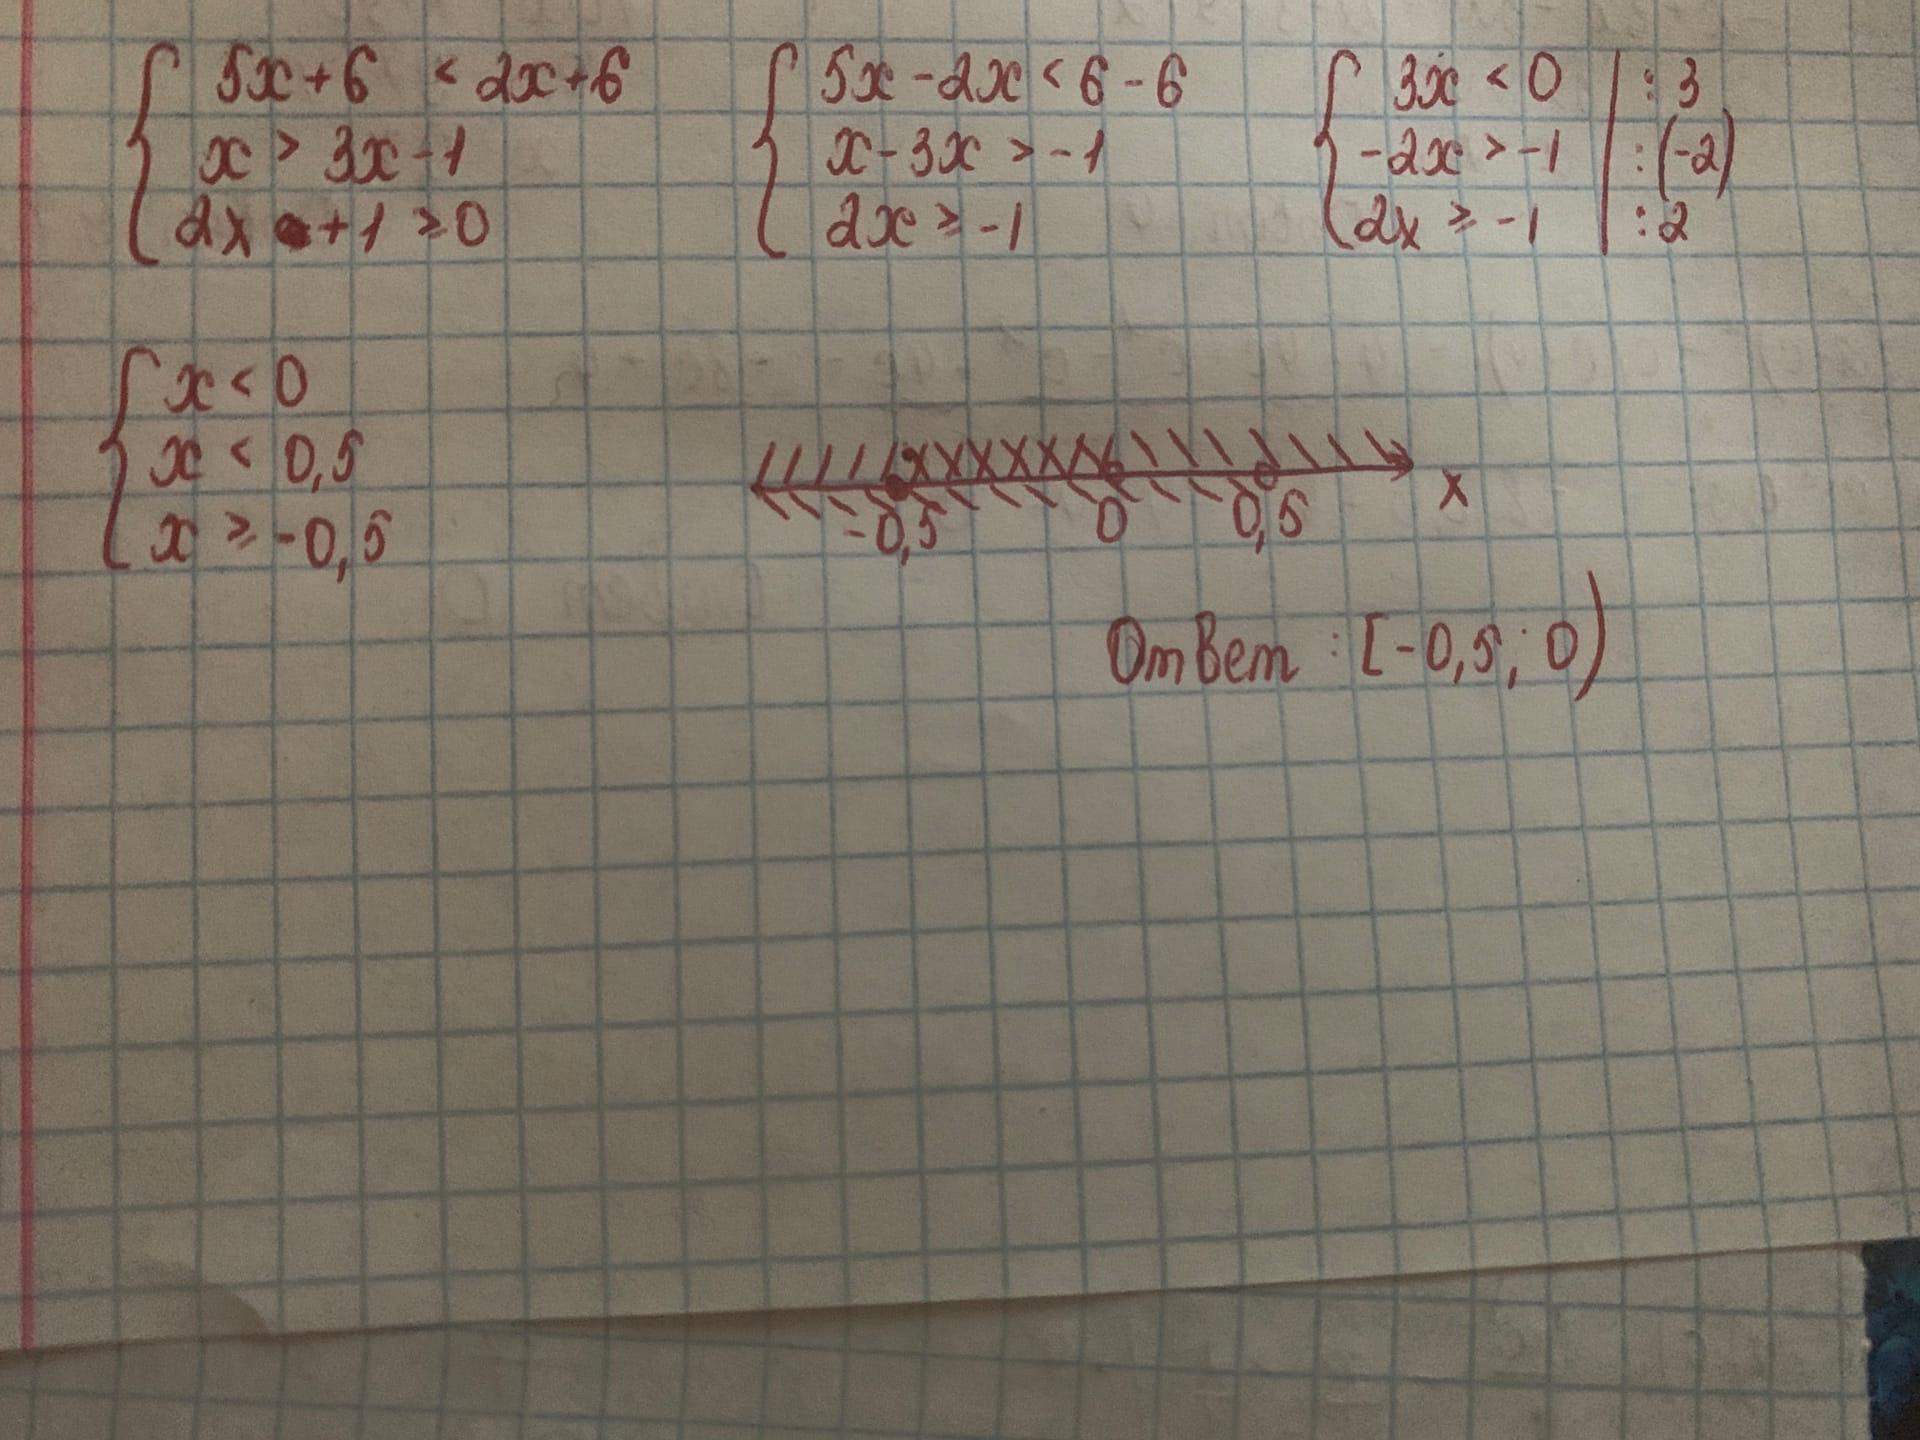 5x+6 < 2x+6
x > 3x-1
2x +1 ≥ 0
5x-2x < 6-6
x-3x > -1
2x ≥ -1
3x < 0 | :3
-2x > -1 | :(-2)
2x ≥ -1 | :2
x < 0
x < 0,5
x ≥ -0,5
-0,5 0 0,5 x
Ответ : [-0,5; 0)